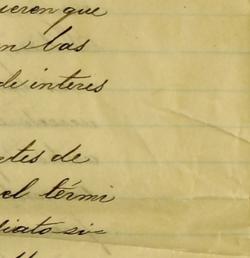 ieren que
en las
de interes
tes de
el térmi
diato si-